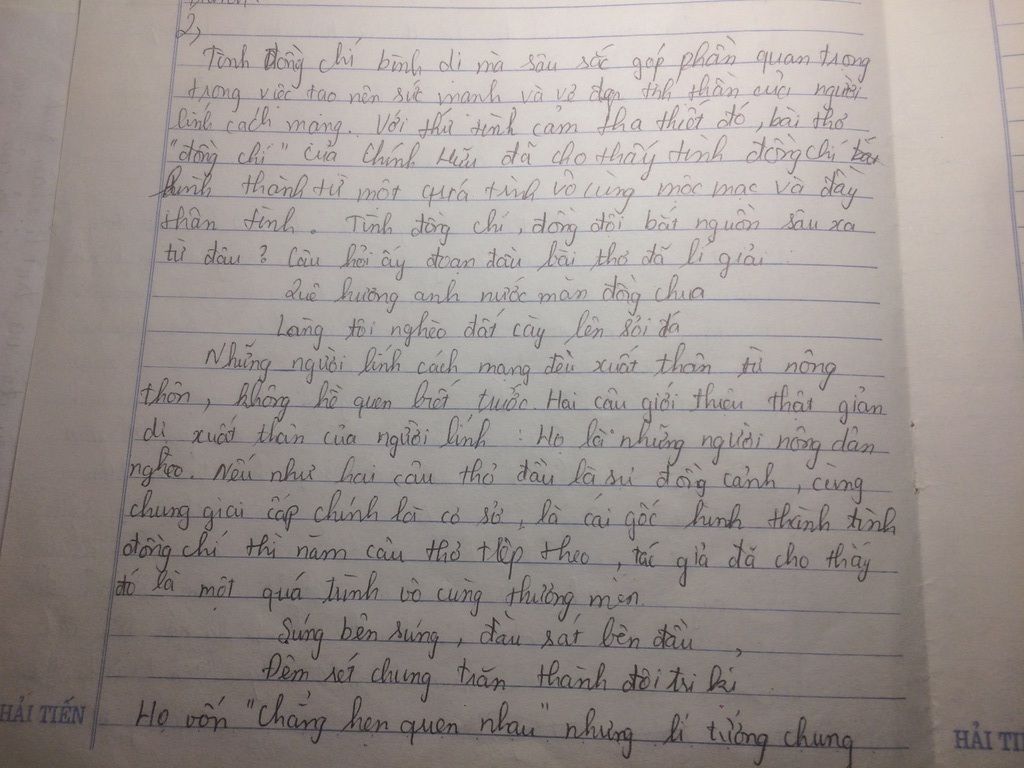 2,
Tình Đồng chí bình dị mà sâu sắc góp phần quan trọng
trọng việc tạo nên sức mạnh và vẻ đẹp tinh thần của người
lính cách mạng. Với thứ tình cảm tha thiết đó, bài thơ
"đồng chí" của Chính Hữu đã cho thấy tình đồng chí
hình thành từ một quá trình vô cùng mộc mạc và đầy
thân tình. Tình đồng chí, đồng đội bắt nguồn sâu xa
từ đâu? Câu hỏi ấy đoạn đầu bài thơ đã lí giải
Quê hương anh nước mặn đồng chua
Làng tôi nghèo đất cày lên sỏi đá
Những người lính cách mạng đều xuất thân từ nông
thôn, không hề quen biết trước. Hai câu giới thiệu thật giản
dị xuất thân của người lính: Họ là những người nông dân
nghèo. Nếu như hai câu thơ đầu là sự đồng cảnh, cùng
chung giai cấp chính là cơ sở, là cái gốc hình thành tình
đồng chí thì năm câu thơ tiếp theo, tác giả đã cho thấy
đó là một quá trình vô cùng thương mến.
Súng bên súng, đầu sát bên đầu,
Đêm rét chung trăn thành đôi tri kỉ
Họ vốn "chẳng hẹn quen nhau" nhưng lí tưởng chung
HẢI TIẾN
HẢI TI